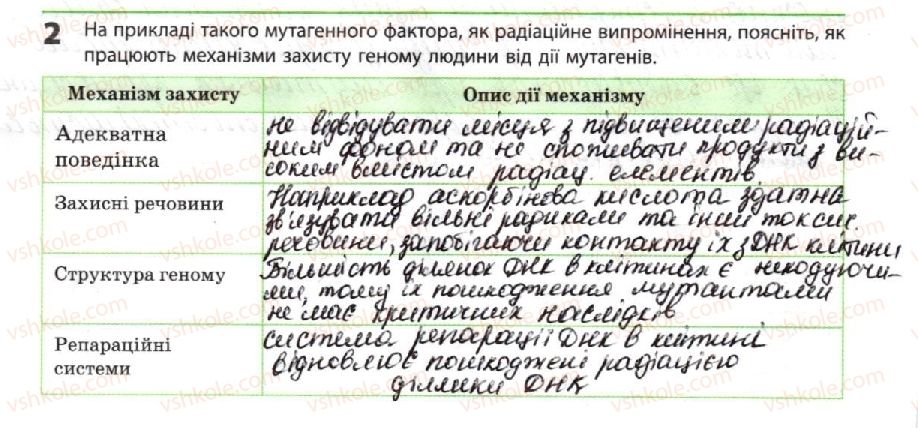 2 На прикладі такого мутагенного фактора, як радіаційне випромінення, поясніть, як
працюють механізми захисту геному людини від дії мутагенів.
Механізм захисту Опис дії механізму
Адекватна
поведінка
не відвідувати місця з підвищеним радіацій-
ним фоном та не споживати продукти з ви-
соким вмістом радіац. елементів.
Захисні речовини
Наприклад аскорбінова кислота здатна
зв'язувати вільні радикали та інші токсич.
речовини, запобігаючи контакту їх з ДНК клітини
Структура геному
Більшість ділянок ДНК в клітинах є некодуючи-
ми, тому їх пошкодження мутантами
не має критичних наслідків
Репараційні
системи
система репарації ДНК в клітині
відновлює пошкоджені радіацією
ділянки ДНК